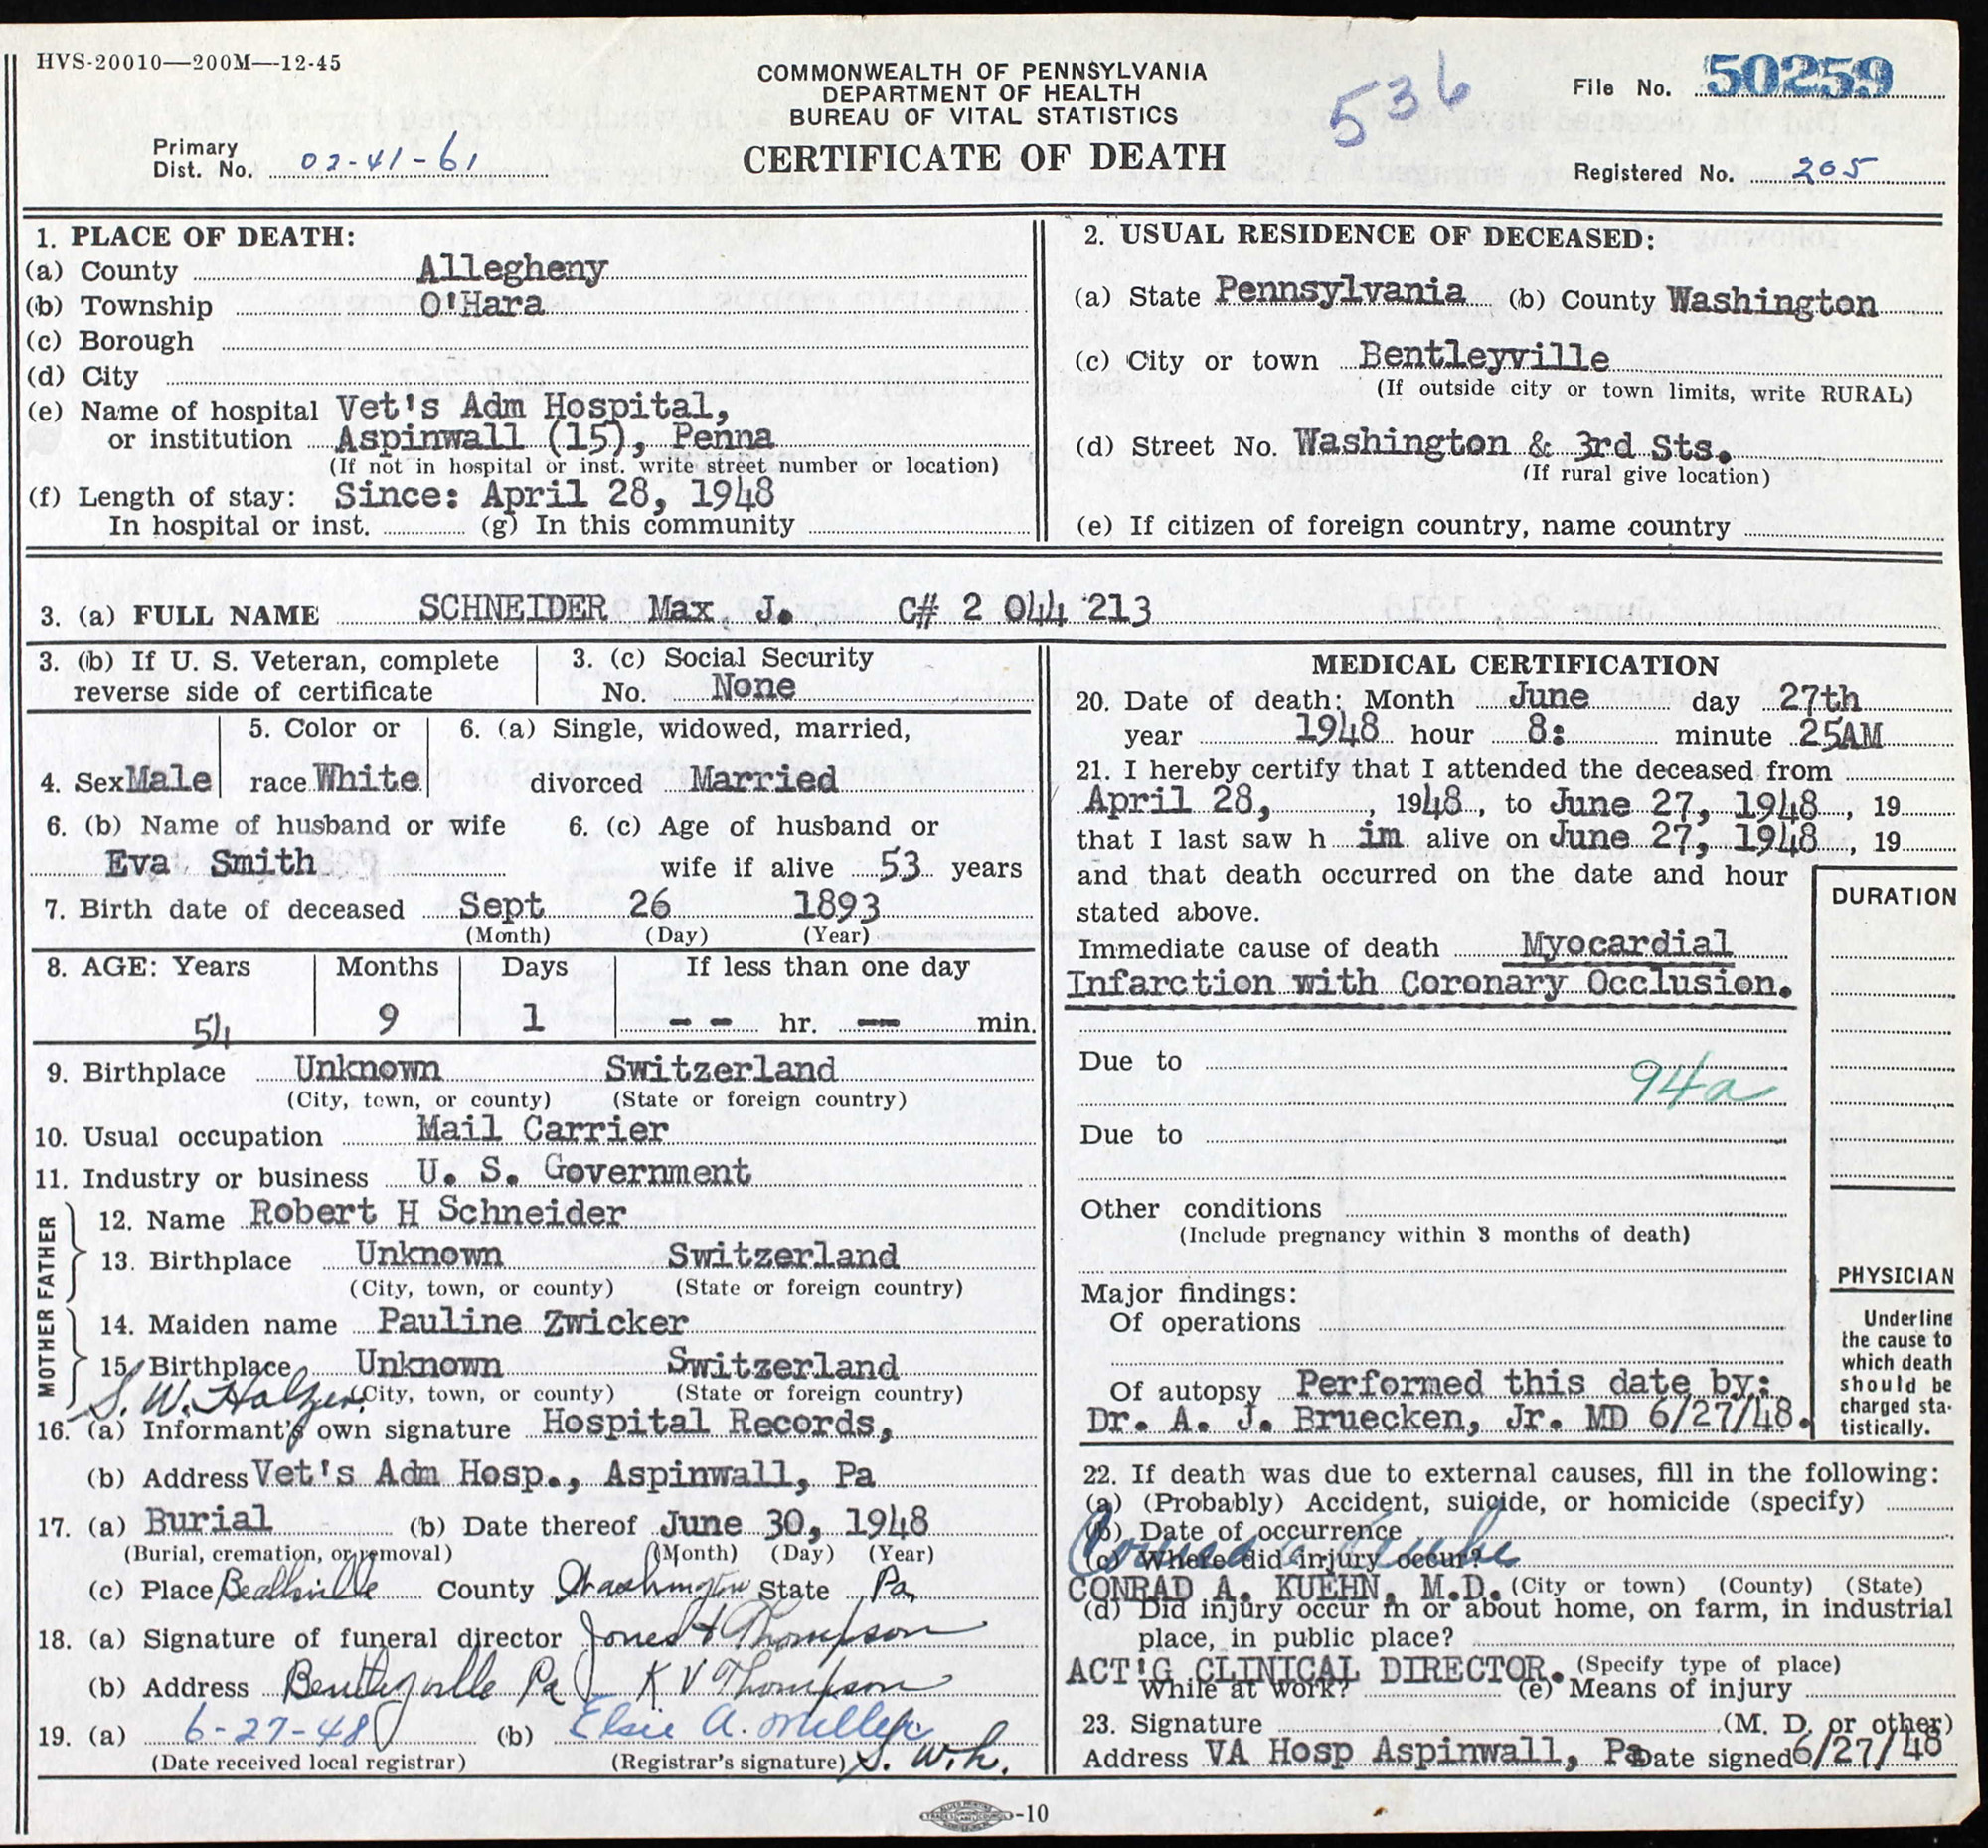 HVS-20010—200M—12-45
COMMONWEALTH OF PENNSYLVANIA
DEPARTMENT OF HEALTH
BUREAU OF VITAL STATISTICS
CERTIFICATE OF DEATH
536
File No. 50259
Primary
Dist. No. 02-41-61
Registered No. 205
1. PLACE OF DEATH:
(a) County Allegheny
(b) Township O'Hara
(c) Borough
(d) City
(e) Name of hospital Vet's Adm Hospital,
or institution Aspinwall (15), Penna
(If not in hospital or inst. write street number or location)
(f) Length of stay: Since: April 28, 1948
In hospital or inst. (g) In this community
2. USUAL RESIDENCE OF DECEASED:
(a) State Pennsylvania (b) County Washington
(c) City or town Bentleyville
(If outside city or town limits, write RURAL)
(d) Street No. Washington & 3rd Sts.
(If rural give location)
(e) If citizen of foreign country, name country
3. (a) FULL NAME SCHNEIDER Max J. C# 2 044 213
3. (b) If U. S. Veteran, complete
reverse side of certificate
3. (c) Social Security
No. None
4. Sex Male
5. Color or
race White
6. (a) Single, widowed, married,
divorced Married
6. (b) Name of husband or wife
Eva Smith
6. (c) Age of husband or
wife if alive 53 years
7. Birth date of deceased Sept 26 1893
(Month) (Day) (Year)
8. AGE: Years Months Days If less than one day
54 9 1 -- hr. -- min.
9. Birthplace Unknown Switzerland
(City, town, or county) (State or foreign country)
10. Usual occupation Mail Carrier
11. Industry or business U. S. Government
FATHER
12. Name Robert H Schneider
13. Birthplace Unknown Switzerland
(City, town, or county) (State or foreign country)
MOTHER
14. Maiden name Pauline Zwicker
15. Birthplace Unknown Switzerland
(City, town, or county) (State or foreign country)
S. W. Holzer
16. (a) Informant's own signature Hospital Records,
(b) Address Vet's Adm Hosp., Aspinwall, Pa
17. (a) Burial (b) Date thereof June 30, 1948
(Burial, cremation, or removal) (Month) (Day) (Year)
(c) Place Beallsville County Washington State Pa,
18. (a) Signature of funeral director Jones & Thompson
(b) Address Bentleyville Pa K V Thompson
19. (a) 6-27-48 (b) Elsie A. Miller
(Date received local registrar) (Registrar's signature) S. W. h.
MEDICAL CERTIFICATION
20. Date of death: Month June day 27th
year 1948 hour 8: minute 25AM
21. I hereby certify that I attended the deceased from
April 28, , 1948, to June 27, 1948, 19
that I last saw h im alive on June 27, 1948, 19
and that death occurred on the date and hour
stated above.
DURATION
Immediate cause of death Myocardial
Infarction with Coronary Occlusion.
Due to
94a
Due to
Other conditions
(Include pregnancy within 3 months of death)
Major findings:
Of operations
Of autopsy Performed this date by:
Dr. A. J. Bruecken, Jr. MD 6/27/48.
PHYSICIAN
Underline
the cause to
which death
should be
charged sta-
tistically.
22. If death was due to external causes, fill in the following:
(a) (Probably) Accident, suicide, or homicide (specify)
(b) Date of occurrence
(c) Where did injury occur?
CONRAD A. KUEHN, M.D. (City or town) (County) (State)
(d) Did injury occur in or about home, on farm, in industrial
place, in public place?
ACT'G CLINICAL DIRECTOR. (Specify type of place)
While at work? (e) Means of injury
23. Signature (M. D. or other)
Address VA Hosp Aspinwall, Pa Date signed 6/27/48
-10